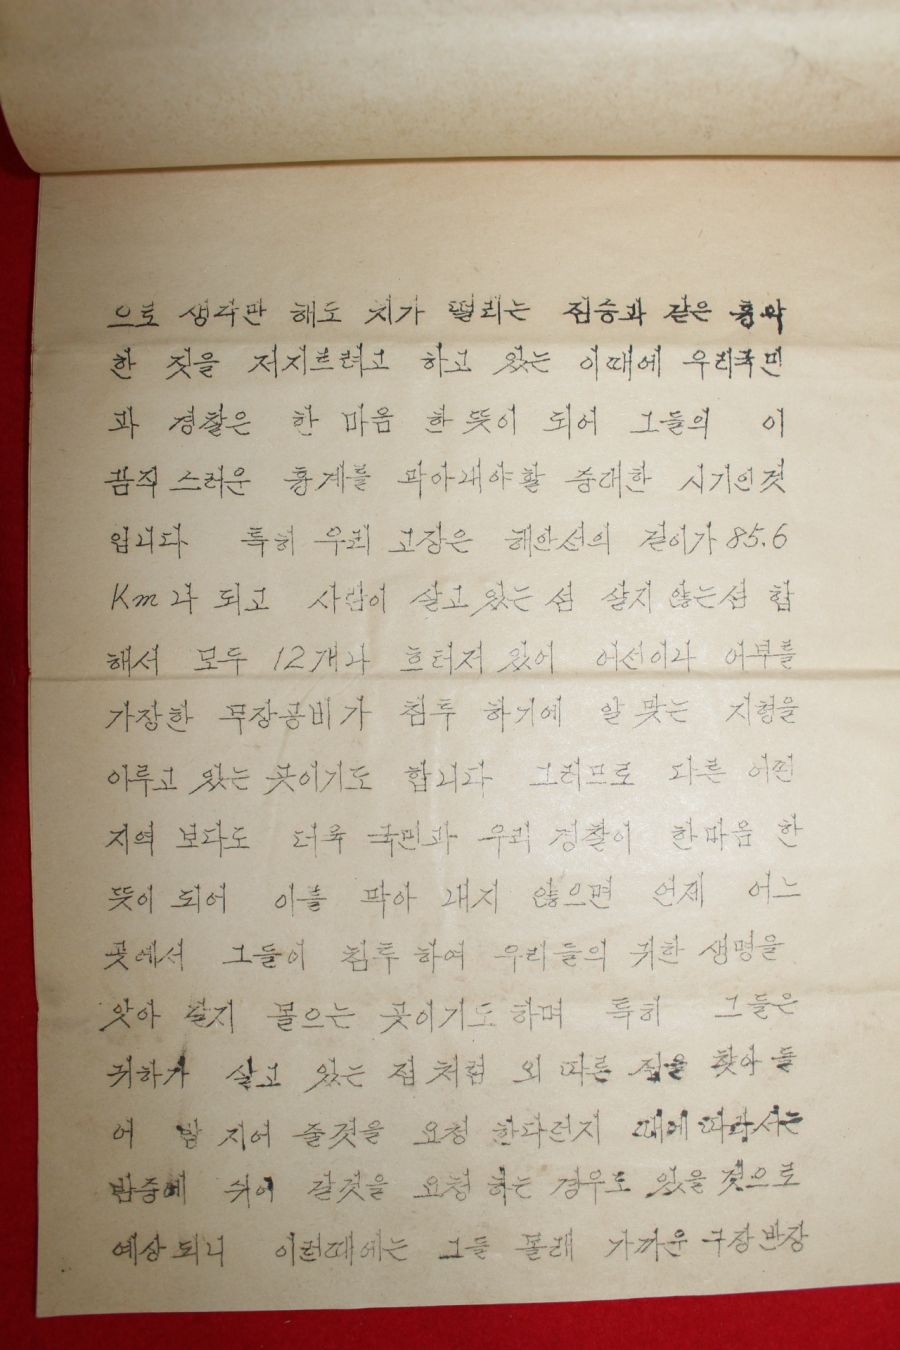 으로 생각만 해도 치가 떨리는 짐승과 같은 흉악
한 짓을 저지르려고 하고 있는 이때에 우리국민
과 경찰은 한 마음 한 뜻이 되어 그들의 이
끔직 스러운 흉계를 막아내야 할 중대한 시기인것
입니다 특히 우리 고장은 해안선의 길이가 85.6
Km나 되고 사람이 살고 있는 섬 살지 않는섬 합
해서 모두 12개나 흐터져 있어 어선이나 어부를
가장한 무장공비가 침투 하기에 알 맞는 지형을
이루고 있는 곳이기도 합니다 그러므로 다른 어떤
지역 보다도 더욱 국민과 우리 경찰이 한마음 한
뜻이 되어 이를 막아 내지 않으면 언제 어느
곳에서 그들이 침투 하여 우리들의 귀한 생명을
앗아 갈지 몰으는 곳이기도 하며 특히 그들은
귀하가 살고 있는 집 처럼 외 따른 집을 찾아 들
어 밥 지어 줄것을 요청 한다던지 때에따라서는
밤중에 쉬어 갈것을 요청 하는 경우도 있을 것으로
예상 되니 이런때에는 그들 몰래 가까운 구장 반장